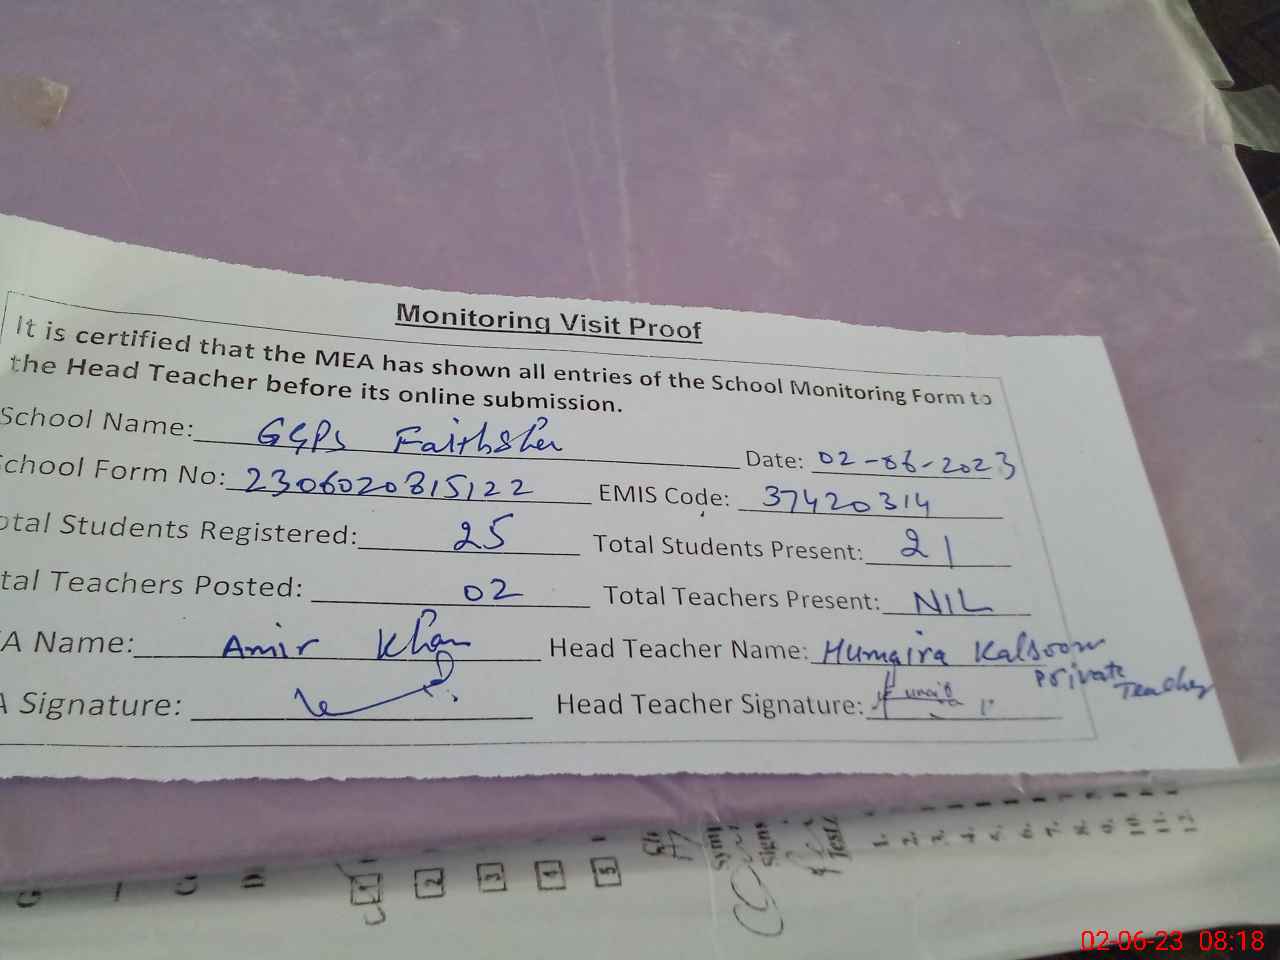 Monitoring Visit Proof
It is certified that the MEA has shown all entries of the School Monitoring Form to
the Head Teacher before its online submission.
School Name: GGPS Date: 02-06-2023
School Form No: 2306020815122 EMIS Code: 37420314
otal Students Registered: 25 Total Students Present: 21
tal Teachers Posted: 02 Total Teachers Present: NIL
A Name: Amir Khan Head Teacher Name: Humaira Kalsoom
Private Teacher
A Signature: Head Teacher Signature:
1 2 3 4 5
1. 2. 3. 4. 5. 6. 7. 8. 9. 10. 11. 12.
02-06-23 08:18